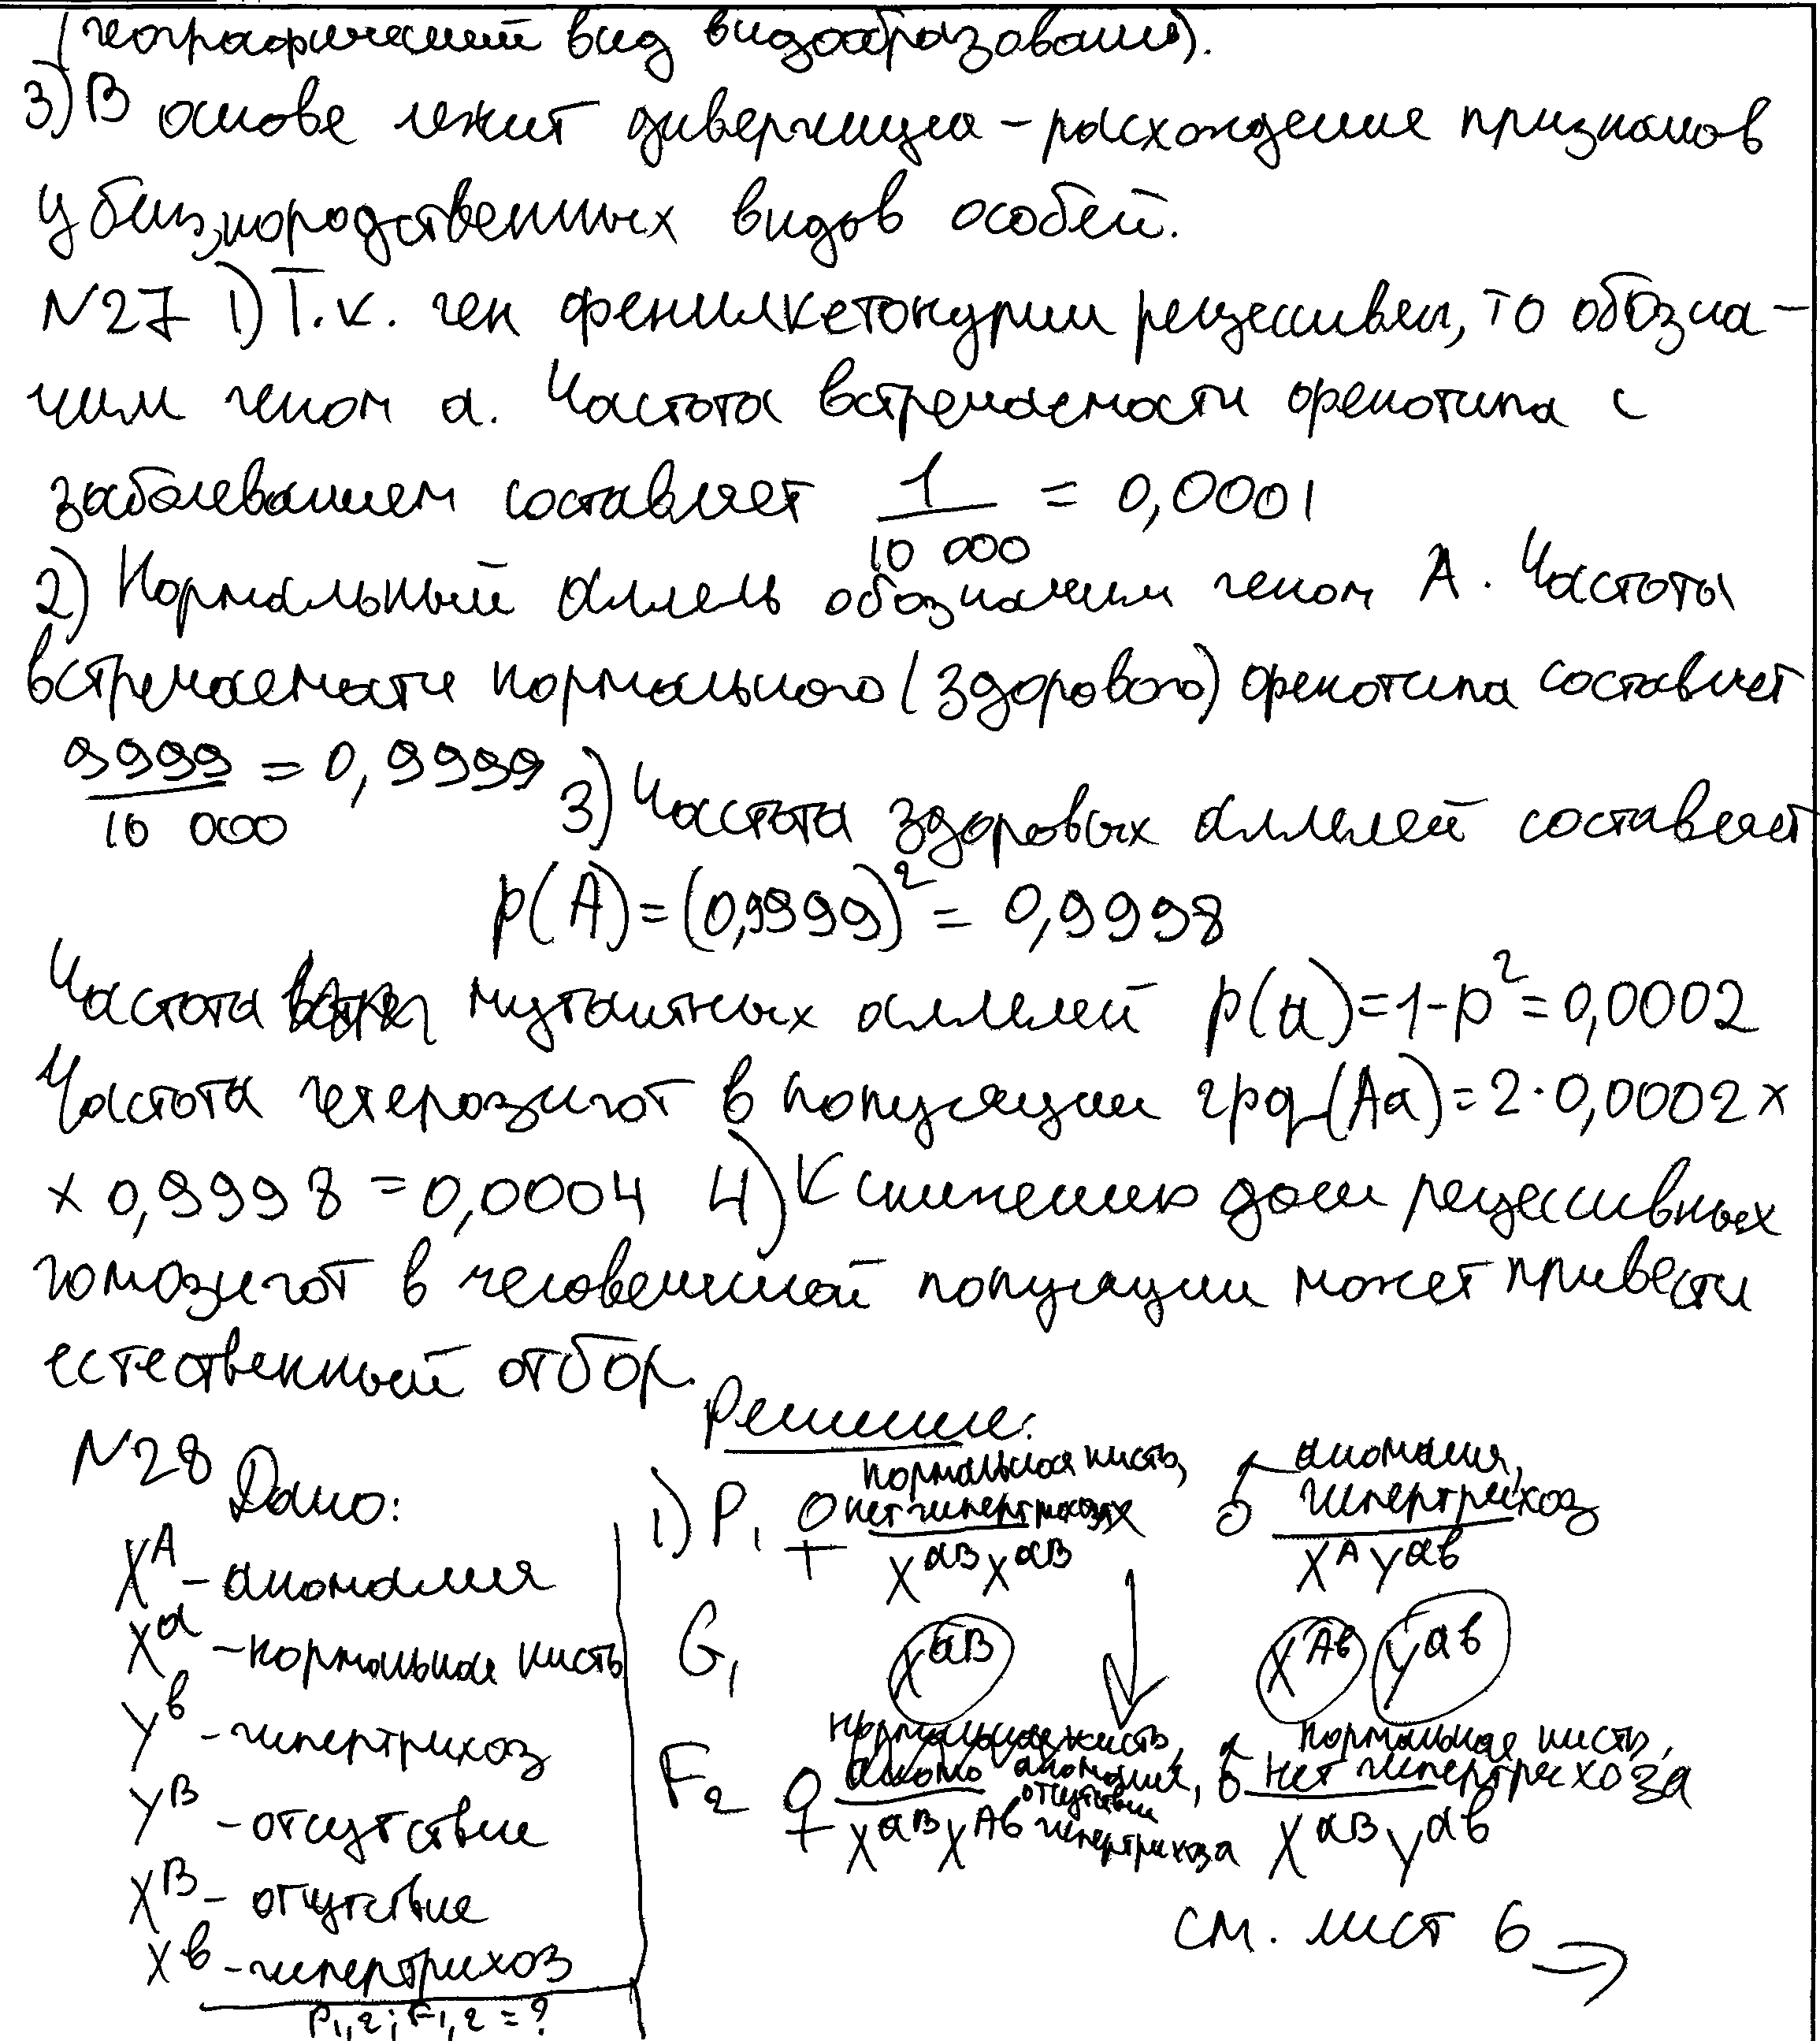 (географический вид видообразования).
3) В основе лежит дивергенция – расхождение признаков
у близкородственных видов особей.
N27 1) Т.к. ген фенилкетонурии рецессивен, то обозна-
чим геном а. Частота встречаемости фенотипа с
заболеванием составляет 1/10 000 = 0,0001
2) Нормальный аллель обозначим геном А. Частота
встречаемости нормального (здорового) фенотипа составляет
9999/10 000 = 0,9999 3) Частота здоровых аллелей составляет
p(A) = (0,9999)² = 0,9998
Частота мутантных аллелей p(a) = 1-p² = 0,0002
Частота гетерозигот в популяции 2pq(Aa) = 2·0,0002 ×
× 0,9998 = 0,0004 4) К снижению доли рецессивных
гомозигот в человеческой популяции может привести
естественный отбор.
N28 Дано:
X^A – аномалия
X^a – нормальная кисть
Y^b – гипертрихоз
Y^B – отсутствие
X^B – отсутствие
X^b – гипертрихоз
P1,2; F1,2 = ?
Решение:
1) P1 ♀ нормальная кисть, нет гипертрихоза ♂ аномалия, гипертрихоз
X^aB X^aB X^A Y^ab
G1 X^aB X^Ab Y^ab
F2 ♀ аномалия, отсутствие гипертрихоза ♂ нормальная кисть, нет гипертрихоза
X^aB X^Ab X^aB Y^ab
см. лист 6 →